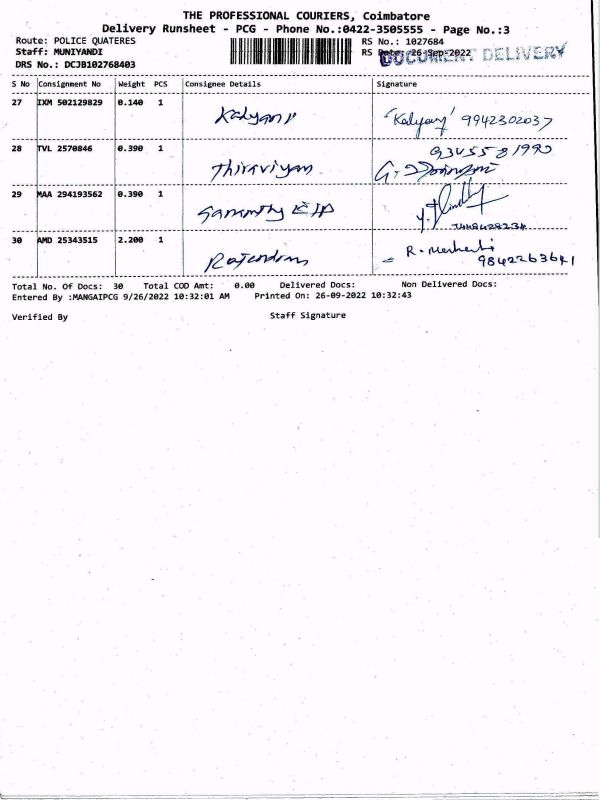 THE PROFESSIONAL COURIERS, Coimbatore
Delivery Runsheet - PCG - Phone No.:0422-3505555 - Page No.:3
Route: POLICE QUATERES
RS No.: 1027684
Staff: MUNIYANDI
RS Date: 26-Sep-2022
DOCUMENT DELIVERY
DRS No.: DCJB102768403
S No Consignment No Weight PCS Consignee Details Signature
27 IXM 502129829 0.140 1 Kalyani "Kalyani" 9942302037
28 TVL 2570846 0.390 1 Thiraviyam
29 MAA 294193562 0.390 1
30 AMD 25343515 2.200 1 Rajendran R. 9842263641
Total No. Of Docs: 30 Total COD Amt: 0.00 Delivered Docs: Non Delivered Docs:
Entered By :MANGAIPCG 9/26/2022 10:32:01 AM Printed On: 26-09-2022 10:32:43
Verified By Staff Signature